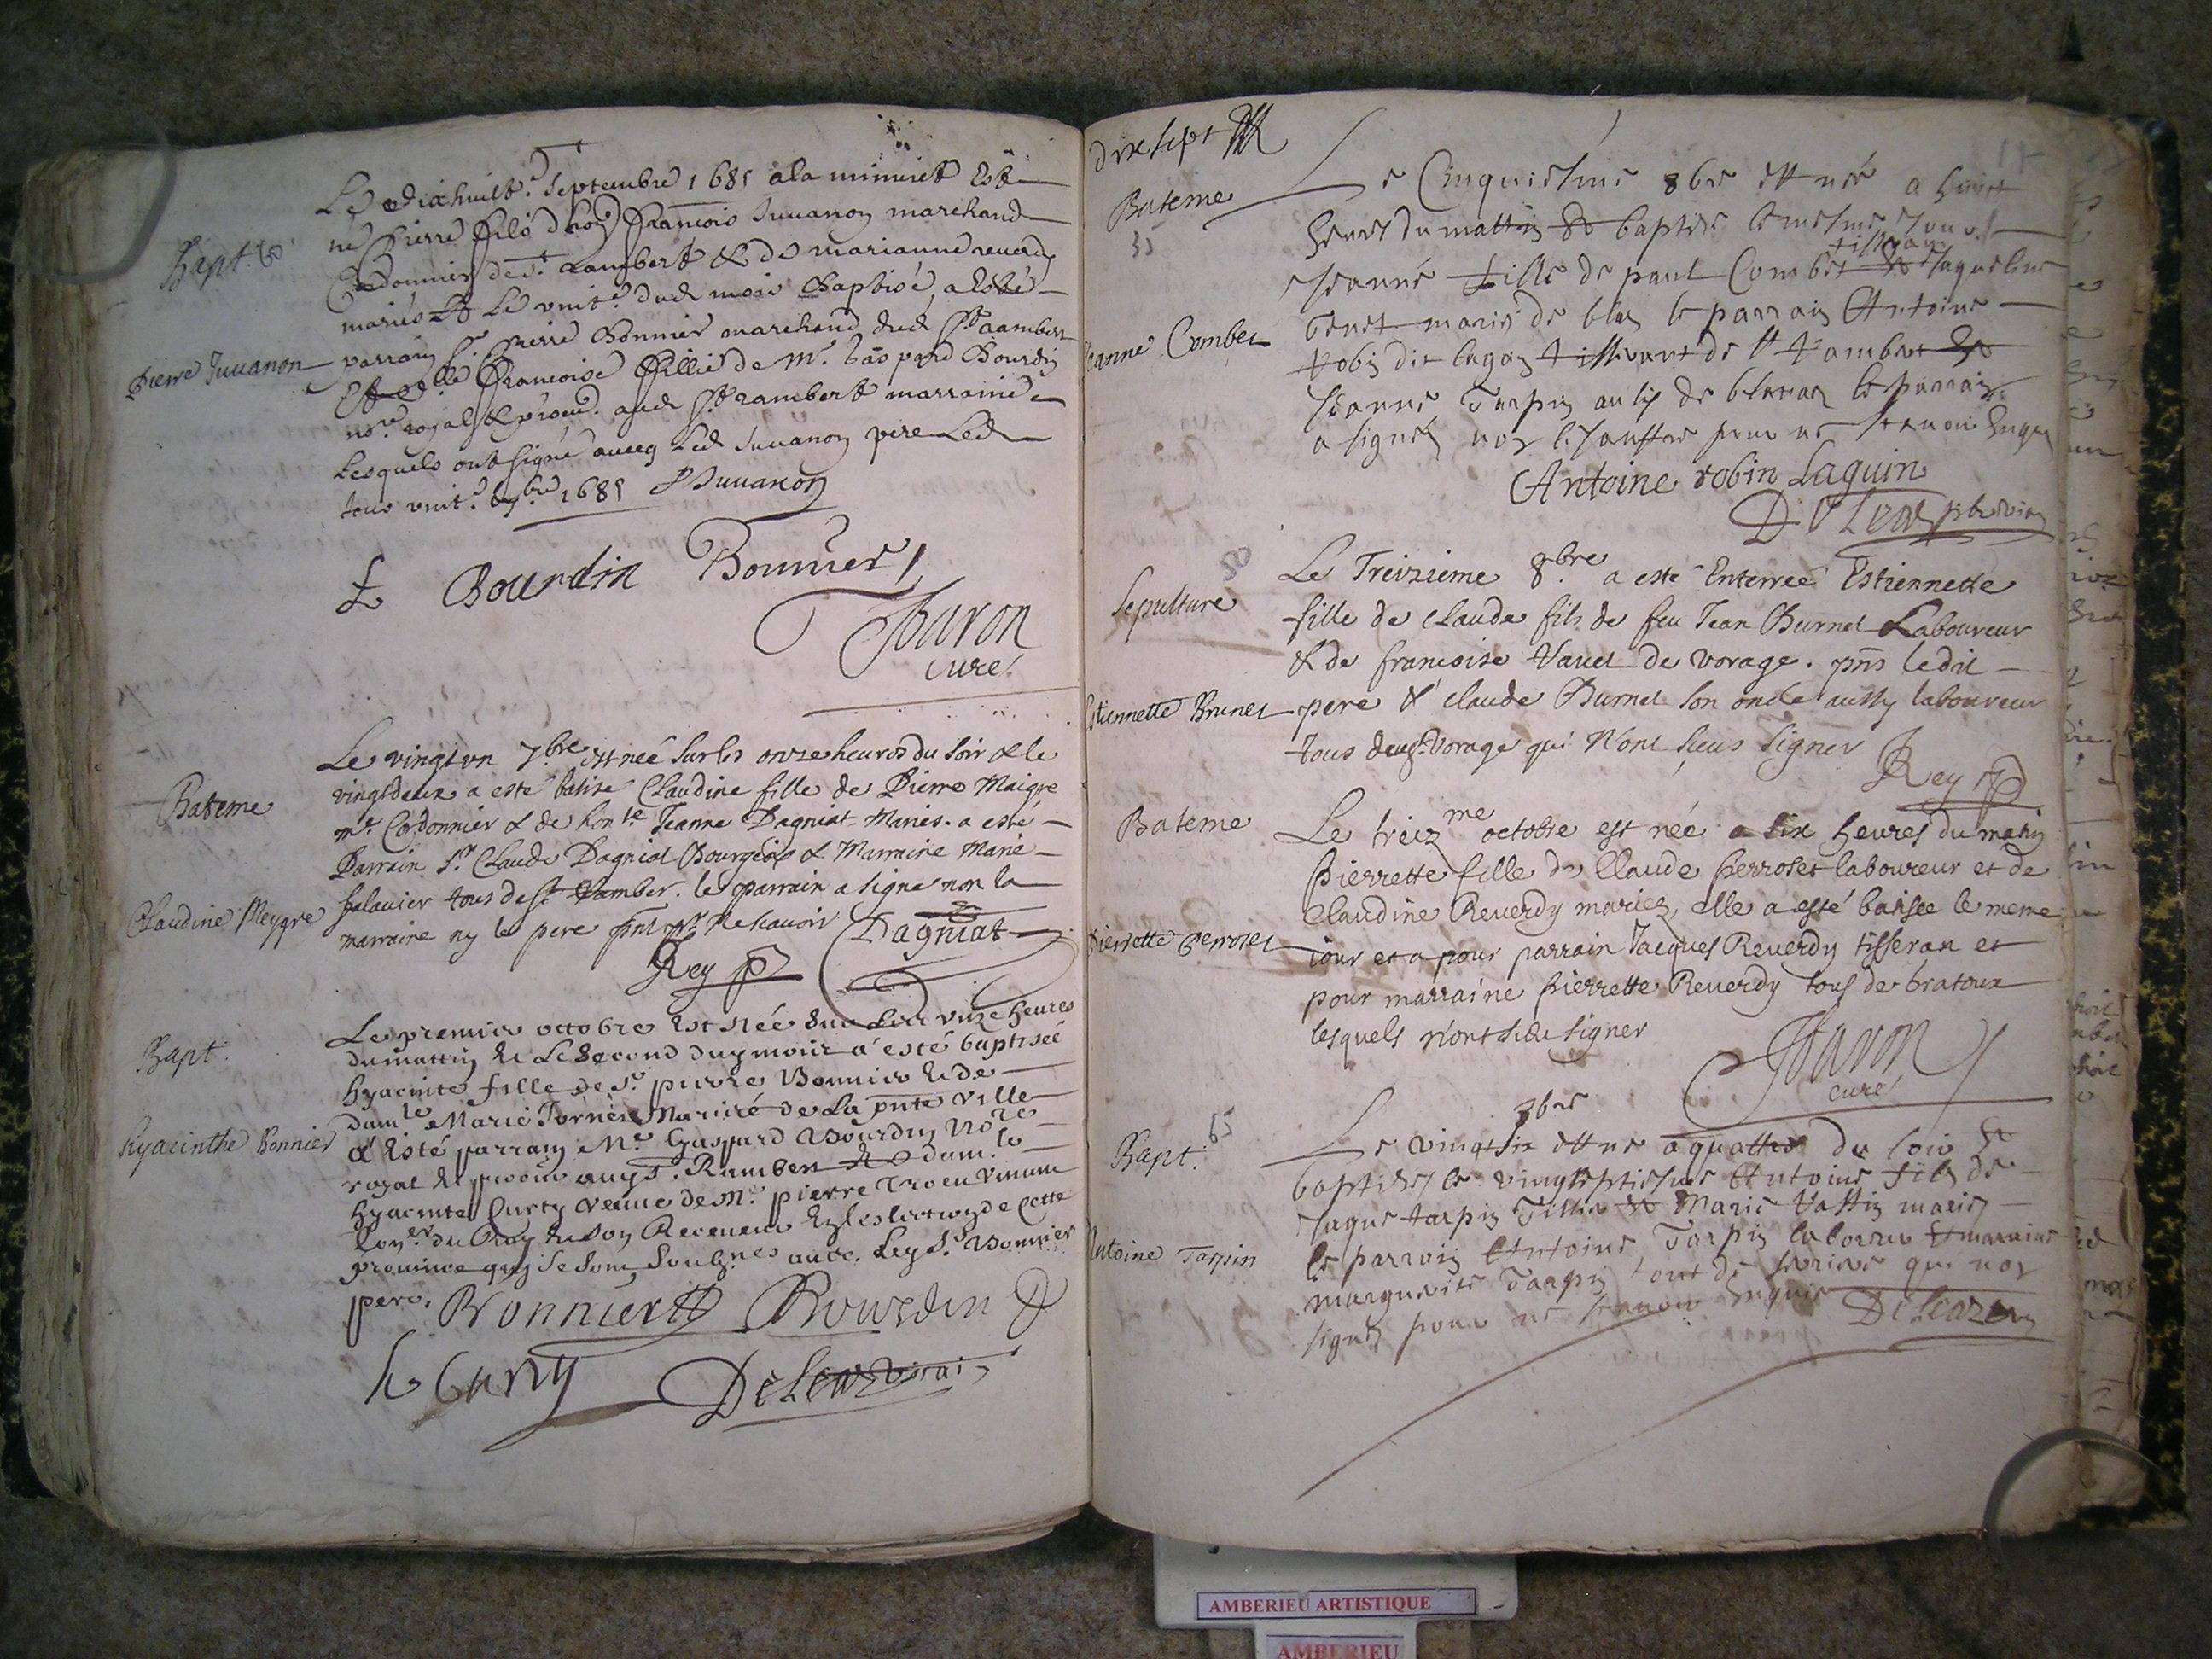 Bapt.
Pierre Juuanon
Le dixhuict.e Septembre 1681 a la minuict Est
né Pierre fils d'hon. François Juuanon marchand
Cordonnier de St Rambert & de marianne reuerdy
mariés & Le vnit.e dud mois Baptisé, a Esté
parrain Sr Pierre Bonnier marchand dud St Rambert
Et dlle Françoise fillie de Mr. Gaspard Bourdin
no.re royal & procur. aud St rambert marraine
Lesquels ont signé auecq Led Juuanon pere Led
jour vnit.e 7bre 1681 Juuanon
Bourdin Bonnier
Baron
curé
Bateme
Claudine Meygre
Le vingt vn 7bre est née sur les onze heures du soir & le
vingtdeux a esté batisé Claudine fille de Pierre Maigre
me Cordonnier & de honte Jeanne Dagniat Mariés. a esté
Parrain Sr Claude Dagniat Bourgeois & Marraine Marie
falauier tous de St Ramber. le parrain a signé non la
marraine ny le pere pour ne scauoir Dagniat
Rey
Bapt.
Hyacinthe Bonnier
Le premier octobre Est née sur Les vnze heures
du mattin & Le second du mois a esté baptisée
hyacinte fille de Sr pierre Bonnier & de
damle Marie Tornier Mariés de La pnte ville
a Esté parrain Me Gaspard Bourdin Nore
royal & procur au St. Rambert & dam.le
hyacinte Curty veuue de Me pierre Trocu viuant
Coner du Roy & son Receueur En l'eslection de cette
prouince qui se sont soubsnes auec Led Sr Bonnier
pere. Bonnier Bourdin
h Curty Deleaz vicai
Dixsept
Bateme
35
Jeanne Combet
Le Cinquiesme 8bre est née a huict
heures du mattin & baptisée le mesme jour
tisserant
Jeanne fille de paul Combet & Jaqueline
Benet mariés de blan le parrain Antoine
Robin dit lagoin tisserant de St Rambert &
Jeanne Tarpin aussy de blanaz le parrain
a signé non les autres pour ne scauoir Enquis
Antoine robin Laguin
Deleaz pbr vic
50
Sepulture
Estiennette Brunet
Le Treizieme 8.bre a esté Enterreé Estiennette
fille de claude fils de feu Jean Burnet Laboureur
& de françoise Vauet de vorage. pns ledit
pere & claude Burnet son oncle aussy laboureur
tous deux Vorage qui Nont sceus signer
Rey
Bateme
Pierrette Perroset
Le treizme octobre est née a six heures du matin
Pierrette fille de Claude perroset laboureur et de
Claudine Reuerdy mariez, elle a esté batisee le meme
iour et a pour parrain Jacques Reuerdy tisseran et
pour marraine pierrette Reuerdy tous de bratoux
lesquels n'ont sceu signer
Baron
curé
65
Bapt.
Antoine Tarpin
8bre
Le vingtsix est né a quattre du soir &
baptisés le vingtseptiesme Antoine fils de
Jaque tarpin Tissier & Marie Vassin mariés
le parrain Antoine Tarpin laboureur & marraine
marguerite Tarpin tout de seuriere qui non
signés pour ne scauoir Enquis Deleaz
AMBERIEU ARTISTIQUE
AMBERIEU